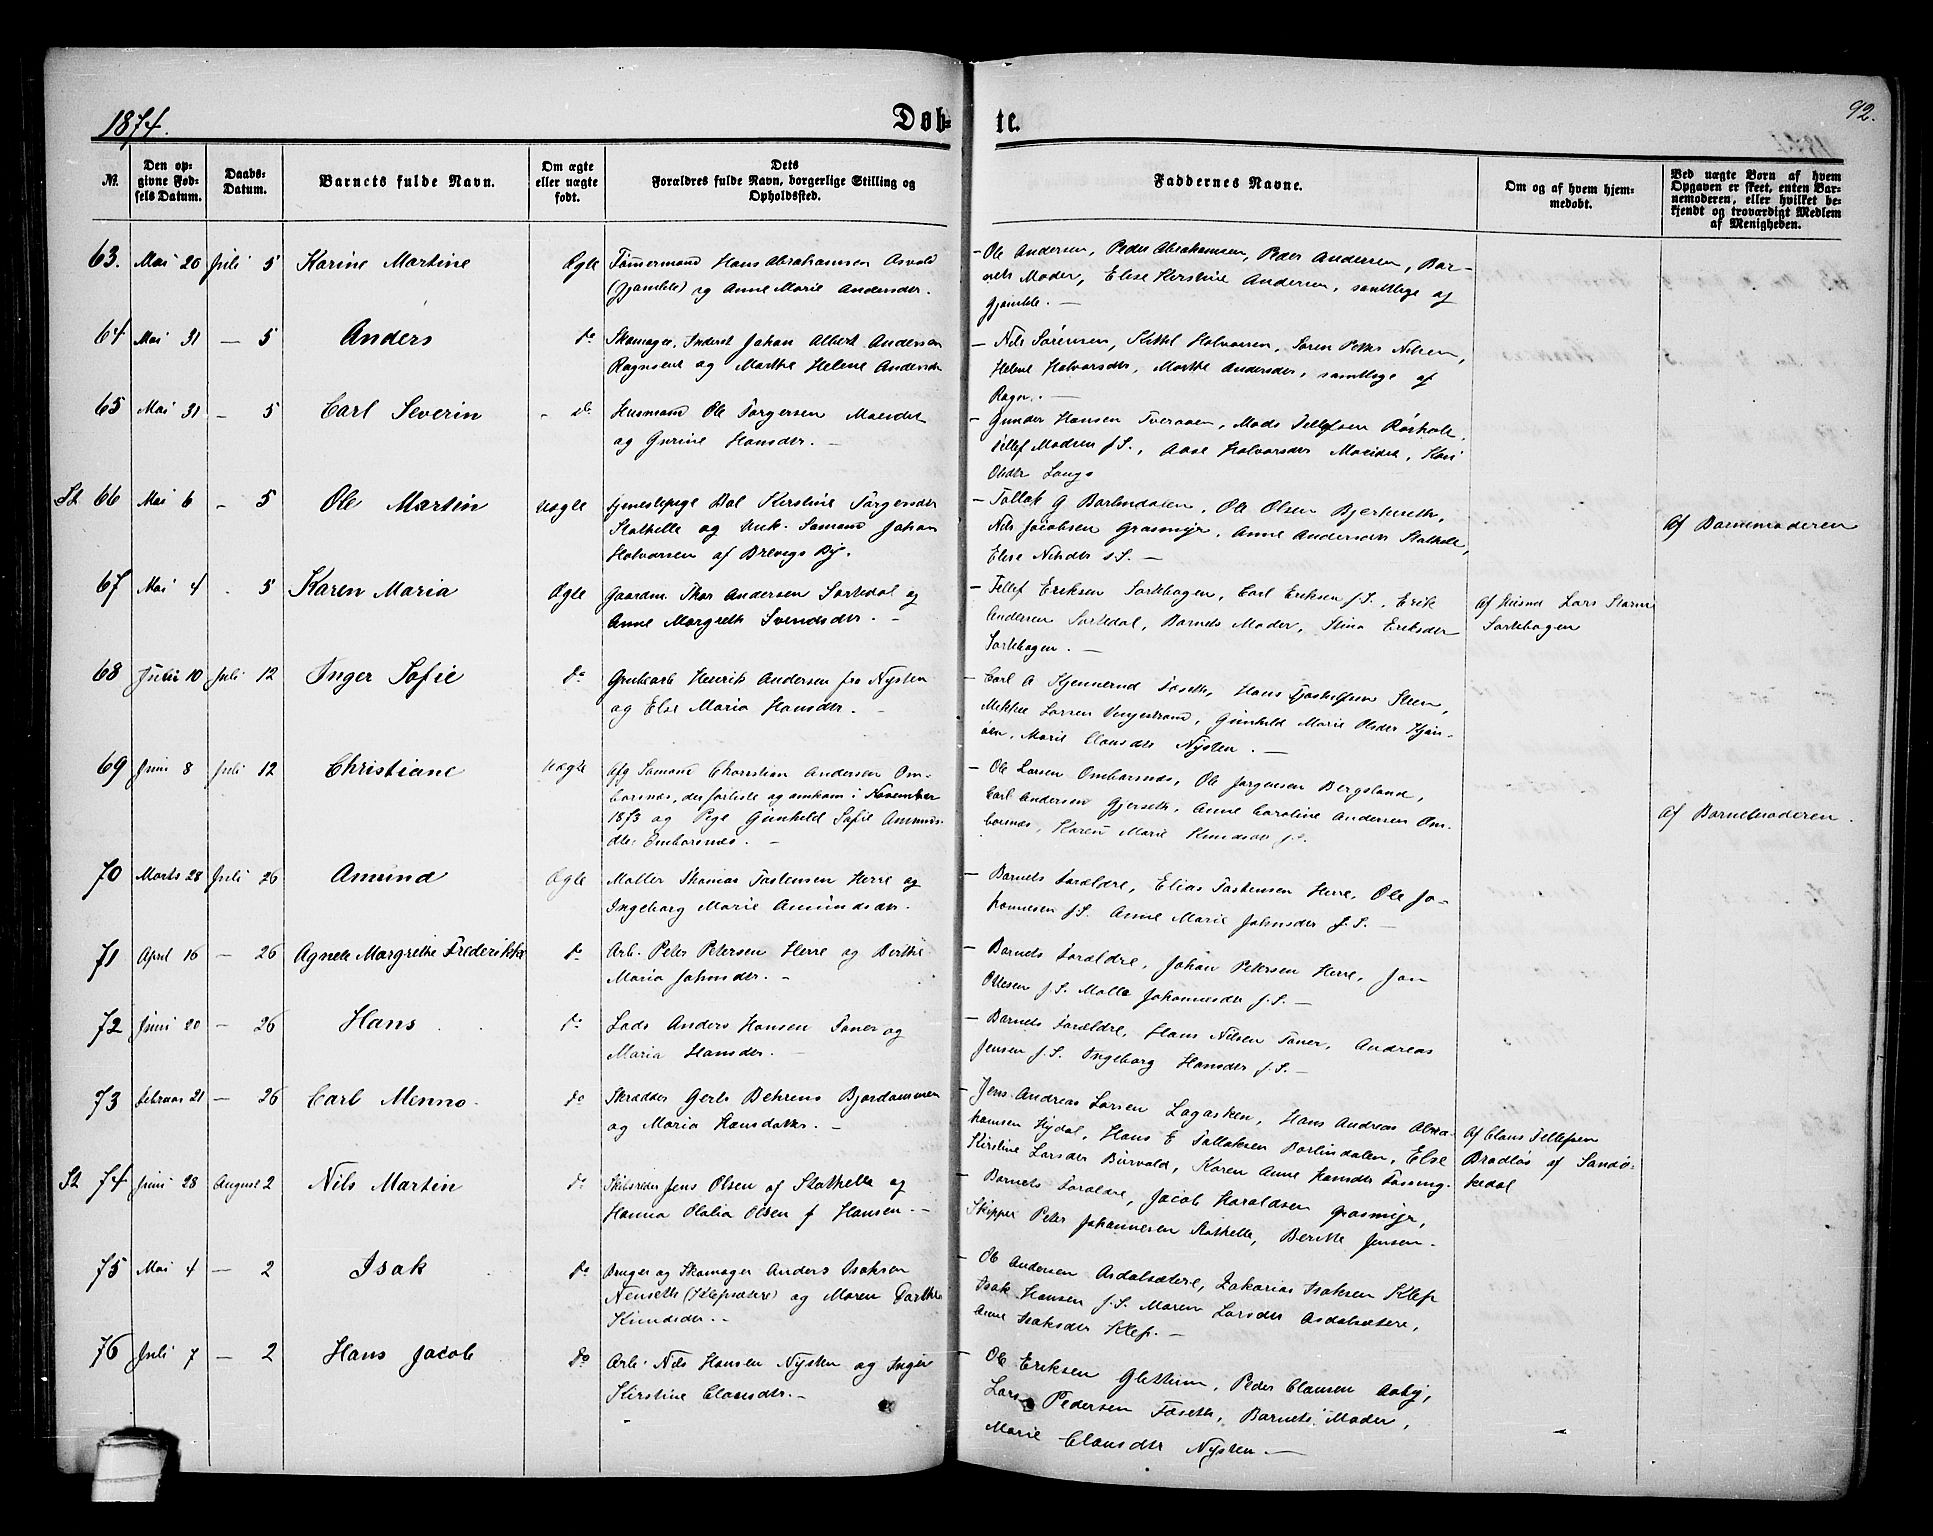 1874.
Døb-
te.
92.
№.
Den op-
givne Fød-
sels Datum.
Daabs-
Datum.
Barnets fulde Navn.
Om ægte
eller uægte
født.
Dets
Forældres fulde Navn, borgerlige Stilling og
Opholdssted.
Faddernes Navne.
Om og af hvem hjem-
medøbt.
Ved uægte Børn af hvem
Opgaven er skeet, enten Bar-
nemoderen, eller hvilket be-
kjendt og troværdigt Medlem
af Menigheden.
63. Mai 20 Juli 5 Karine Martine Ægte
Tømmermand Hans Abrahamsen Asvold
(Gjamble) og Anne Marie Andersdr.
- Ole Andersen, Peder Abrahamsen, Peder Andersen, Bar-
nets Moder, Elise Kirstine Andersen, samtlige af
Gjamble. -
64 Mai 31 - 5 Anders do
Skomager, Inderst Johan Albert Andersen
og Marthe Helene Andersdr
- Nils Sørensen, Kittil Halvorsen, Søren Petter Nilsen,
Helene Halvorsdr, Marthe Andersdr, samtlige af
65 Mai 31 - 5 Carl Severin - do
Husmand Ole Torgersen Moeidet
og Gurine Hansdr. -
- Gunder Hansen Tveraaen, Mads Tellefsen Rørholt,
Tellef Madsen f.S., Aase Halvorsdr Moeidet, Kari
Olsdr Langø
St 66 Mai 6 - 5 Ole Martin uægte
Tjenestepige Kirstine Torgersdr
Stathelle og Unk. Sømand Johan
Halvorsen af Brevigs By.
- Tollak G Barlindalen, Ole Olsen Bjerketh,
Nils Jacobsen Grasmyr, Anne Andersdr Stathelle,
Elise Nilsdr s.S. -
Af Barnemoderen
67 Mai 4 - 5 Karen Maria Ægte
Gaardm. Thor Andersen Sortedal og
Anne Margrethe Svendsdr. -
- Tellef Eriksen Sortebogen, Carl Eriksen f.S., Erik
Andersen Sortedal, Barnets Moder, Stina Eriksdr
Sortebogen. -
Af Husmd Lars
Sortebogen
68 Juni 10 Juli 12 Inger Sofie do
Grubearb Henrik Andersen fra Nysten
og Else Maria Hansdr. -
- Carl A Kjennerud Foseth, Hans Steen,
Mekkel Larsen Vinjestrand, Gunhild Marie Olsdr Kjøn-
øen, Marie Clausdr Nysten. -
69 Juni 8 Juli 12 Christiane uægte
Afg Sømand Christian Andersen Om-
borsnes, der forliste og omkom i November
1873 og Pige Gunhild Sofie Amunds-
dtr Omborsnes. -
- Ole Larsen Omborsnes, Ole Jørgensen Bergsland,
Carl Andersen Gjerseth, Anne Caroline Andersen Om-
borsnes, Karen Marie Knudsdr f.S.
Af Barnemoderen.
70 Marts 28 Juli 26 Amund Ægte
Møller Thomas Tostensen Herre og
Ingeborg Marie Amundsdr.
- Barnets Forældre, Elias Tostensen Herre, Ole Jo-
hannesen f.S. Anne Marie Johnsdr f.S. -
71 April 16 - 26 Agnete Margrethe Frederikke do
Arb. Peter Petersen Herre og Berthe
Maria Johnsdr. -
- Barnets Forældre, Johan Petersen Herre, Jon
Ottesen f.S. Malle Johannesdr f.S. -
72 Juni 20 - 26 Hans do
Lods Anders Hansen Toner og
Maria Hansdr. -
- Barnets Forældre, Hans Nilsen Toner, Andreas
Jensen f.S. Ingeborg Hansdr f.S. -
73 Februar 21 - 26 Carl Menno do
Skrædder Gerts Behrens Bjordammen
og Maria Hansdatter. -
- Jens Andreas Larsen Lagasken, Hans Andreas Abra-
hamsen Hydal, Hans E Tollaksen Barlindalen, Else
Kirstine Larsdr Burvald, Karen Anne Hansdr
Af Claus Tellefsen
Bradløs af Sandø-
kedal
St 74 Juni 28 August 2 Nils Martin do
Skibsreder Jens Olsen af Stathelle og
Hanna Olalia Olsen f Hansen. -
- Barnets Forældre, Jacob Haraldsen Grasmyr,
Skipper Peter Johannesen Stathelle, Berthe Jensen.
75 Mai 4 - 2 Isak do
Bruger og Skomager Anders Isaksen
Nenseth (Klepsætere) og Maren Dorthe
Knudsdr. -
- Ole Andersen Asdalsætere, Zakarias Isaksen Klep
Isak Hansen f.S. Maren Larsdr Asdalsætere,
Anne Isaksdr Klep. -
76 Juli 7 - 2 Hans Jacob do
Arb. Nils Hansen Nysten og Inger
Kirstine Clausdr. -
- Ole Eriksen Glettum, Peder Clausen Aaby,
Lars Pedersen Foseth, Barnets Moder,
Marie Clausdtr Nysten. -